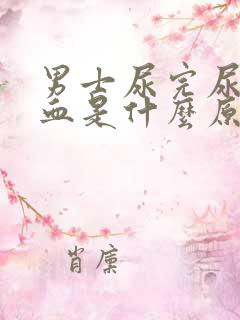 男士尿完尿
血是什麼原
肖廉